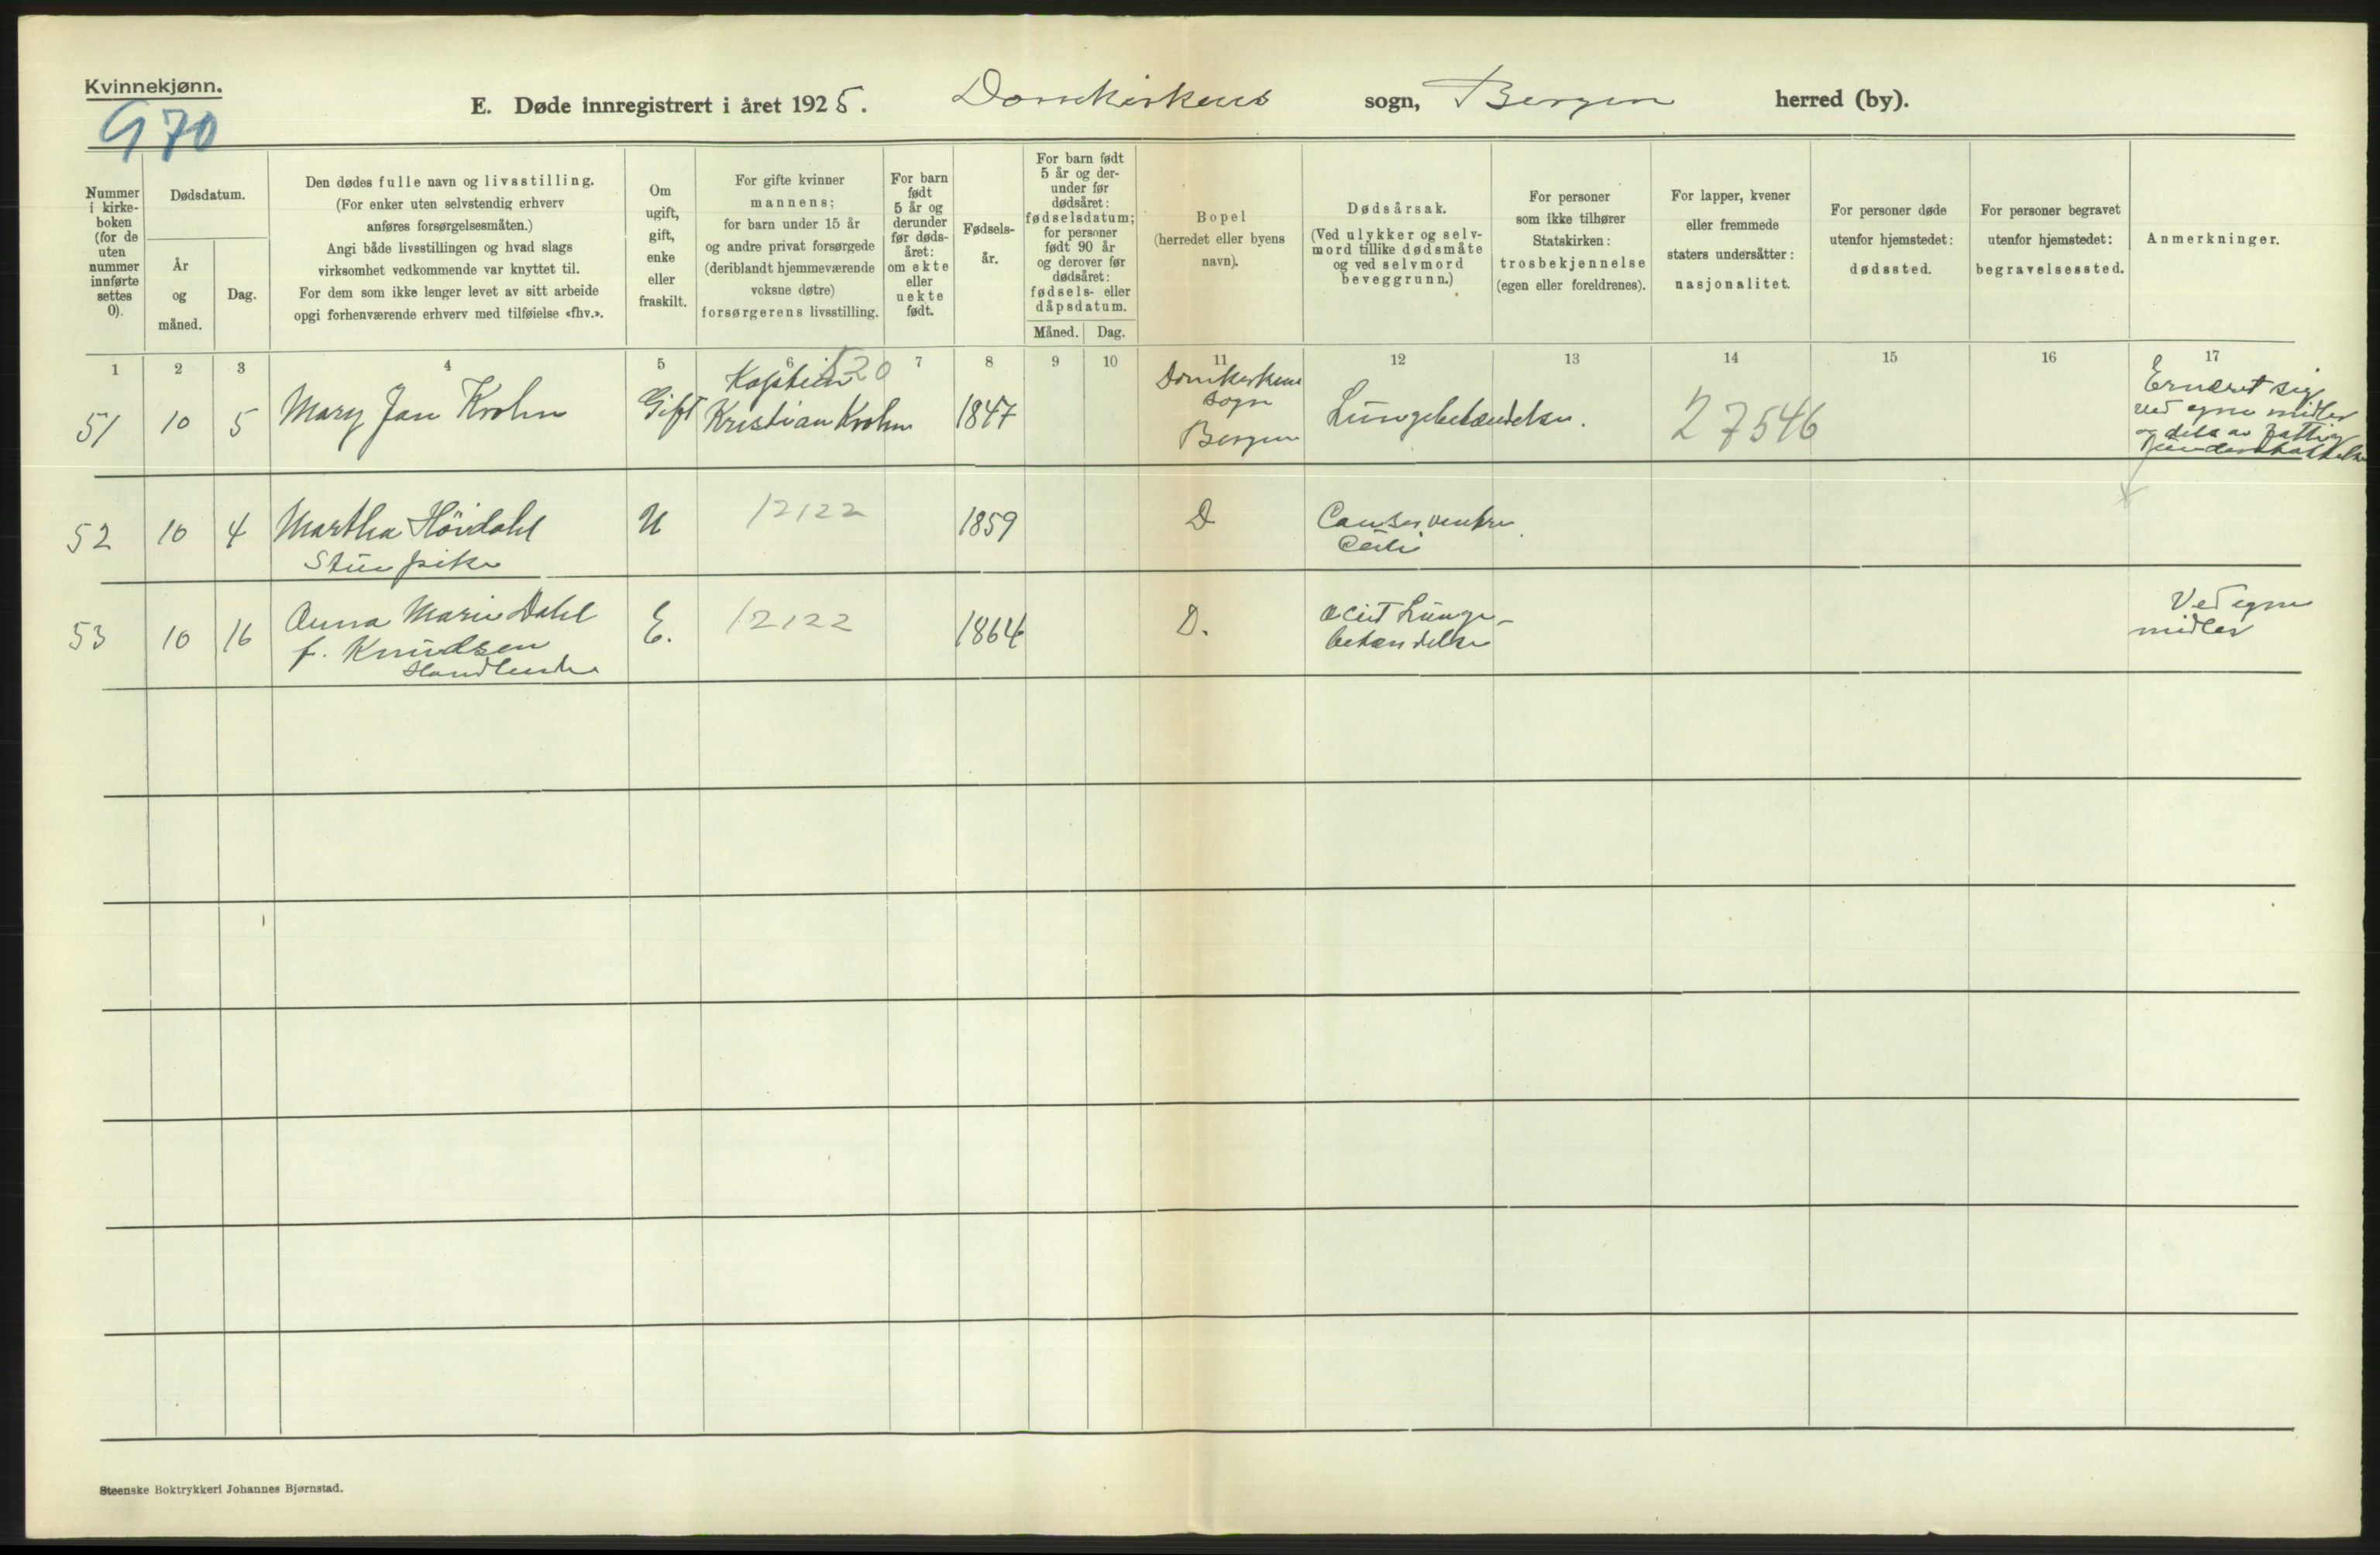 Kvinnekjønn.
970
E. Døde innregistrert i året 1925. Domkirkens sogn, Bergen herred (by).
Nummer i kirke-boken (for de uten nummer innførte settes 0).
Dødsdatum.
År og måned.
Dag.
Den dødes fulle navn og livsstilling.
(For enker uten selvstendig erhverv
anføres forsørgelsesmåten.)
Angi både livsstillingen og hvad slags
virksomhet vedkommende var knyttet til.
For dem som ikke lenger levet av sitt arbeide
opgi forhenværende erhverv med tilføielse «fhv.».
Om
ugift,
gift,
enke
eller
fraskilt.
For gifte kvinner
mannens;
for barn under 15 år
og andre privat forsørgede
(deriblandt hjemmeværende
voksne døtre)
forsørgerens livsstilling.
For barn
født
5 år og
derunder
før døds-
året:
om ekte
eller
uekte
født.
Fødsels-
år.
For barn født
5 år og der-
under før
dødsåret:
fødselsdatum;
for personer
født 90 år
og derover før
dødsåret:
fødsels- eller
dåpsdatum.
Måned. Dag.
Bopel
(herredet eller byens
navn).
Dødsårsak.
(Ved ulykker og selv-
mord tillike dødsmåte
og ved selvmord
beveggrunn.)
For personer
som ikke tilhører
Statskirken:
trosbekjennelse
(egen eller foreldrenes).
For lapper, kvener
eller fremmede
staters undersåtter:
nasjonalitet.
For personer døde
utenfor hjemstedet:
dødssted.
For personer begravet
utenfor hjemstedet:
begravelsessted.
Anmerkninger.
1 2 3 4 5 6 7 8 9 10 11 12 13 14 15 16 17
51 10 5 Mary Jan Krohn Gift
Kaptein
Kristian Krohn
1847
Domkirkens
sogn
Bergen
Lungebetændelse.
27546
Ernæret sig
ved egne midler
og dels av fattig
52 10 4 Martha Höidahl
Stuepike
U 12122 1859 D
Cancer ventri
53 10 16 Anna Marie Dahl
f. Knudsen
E. 12122 1864 D.
Acut Lunge-
betændelse
Ved egne
midler
Steenske Boktrykkeri Johannes Bjørnstad.